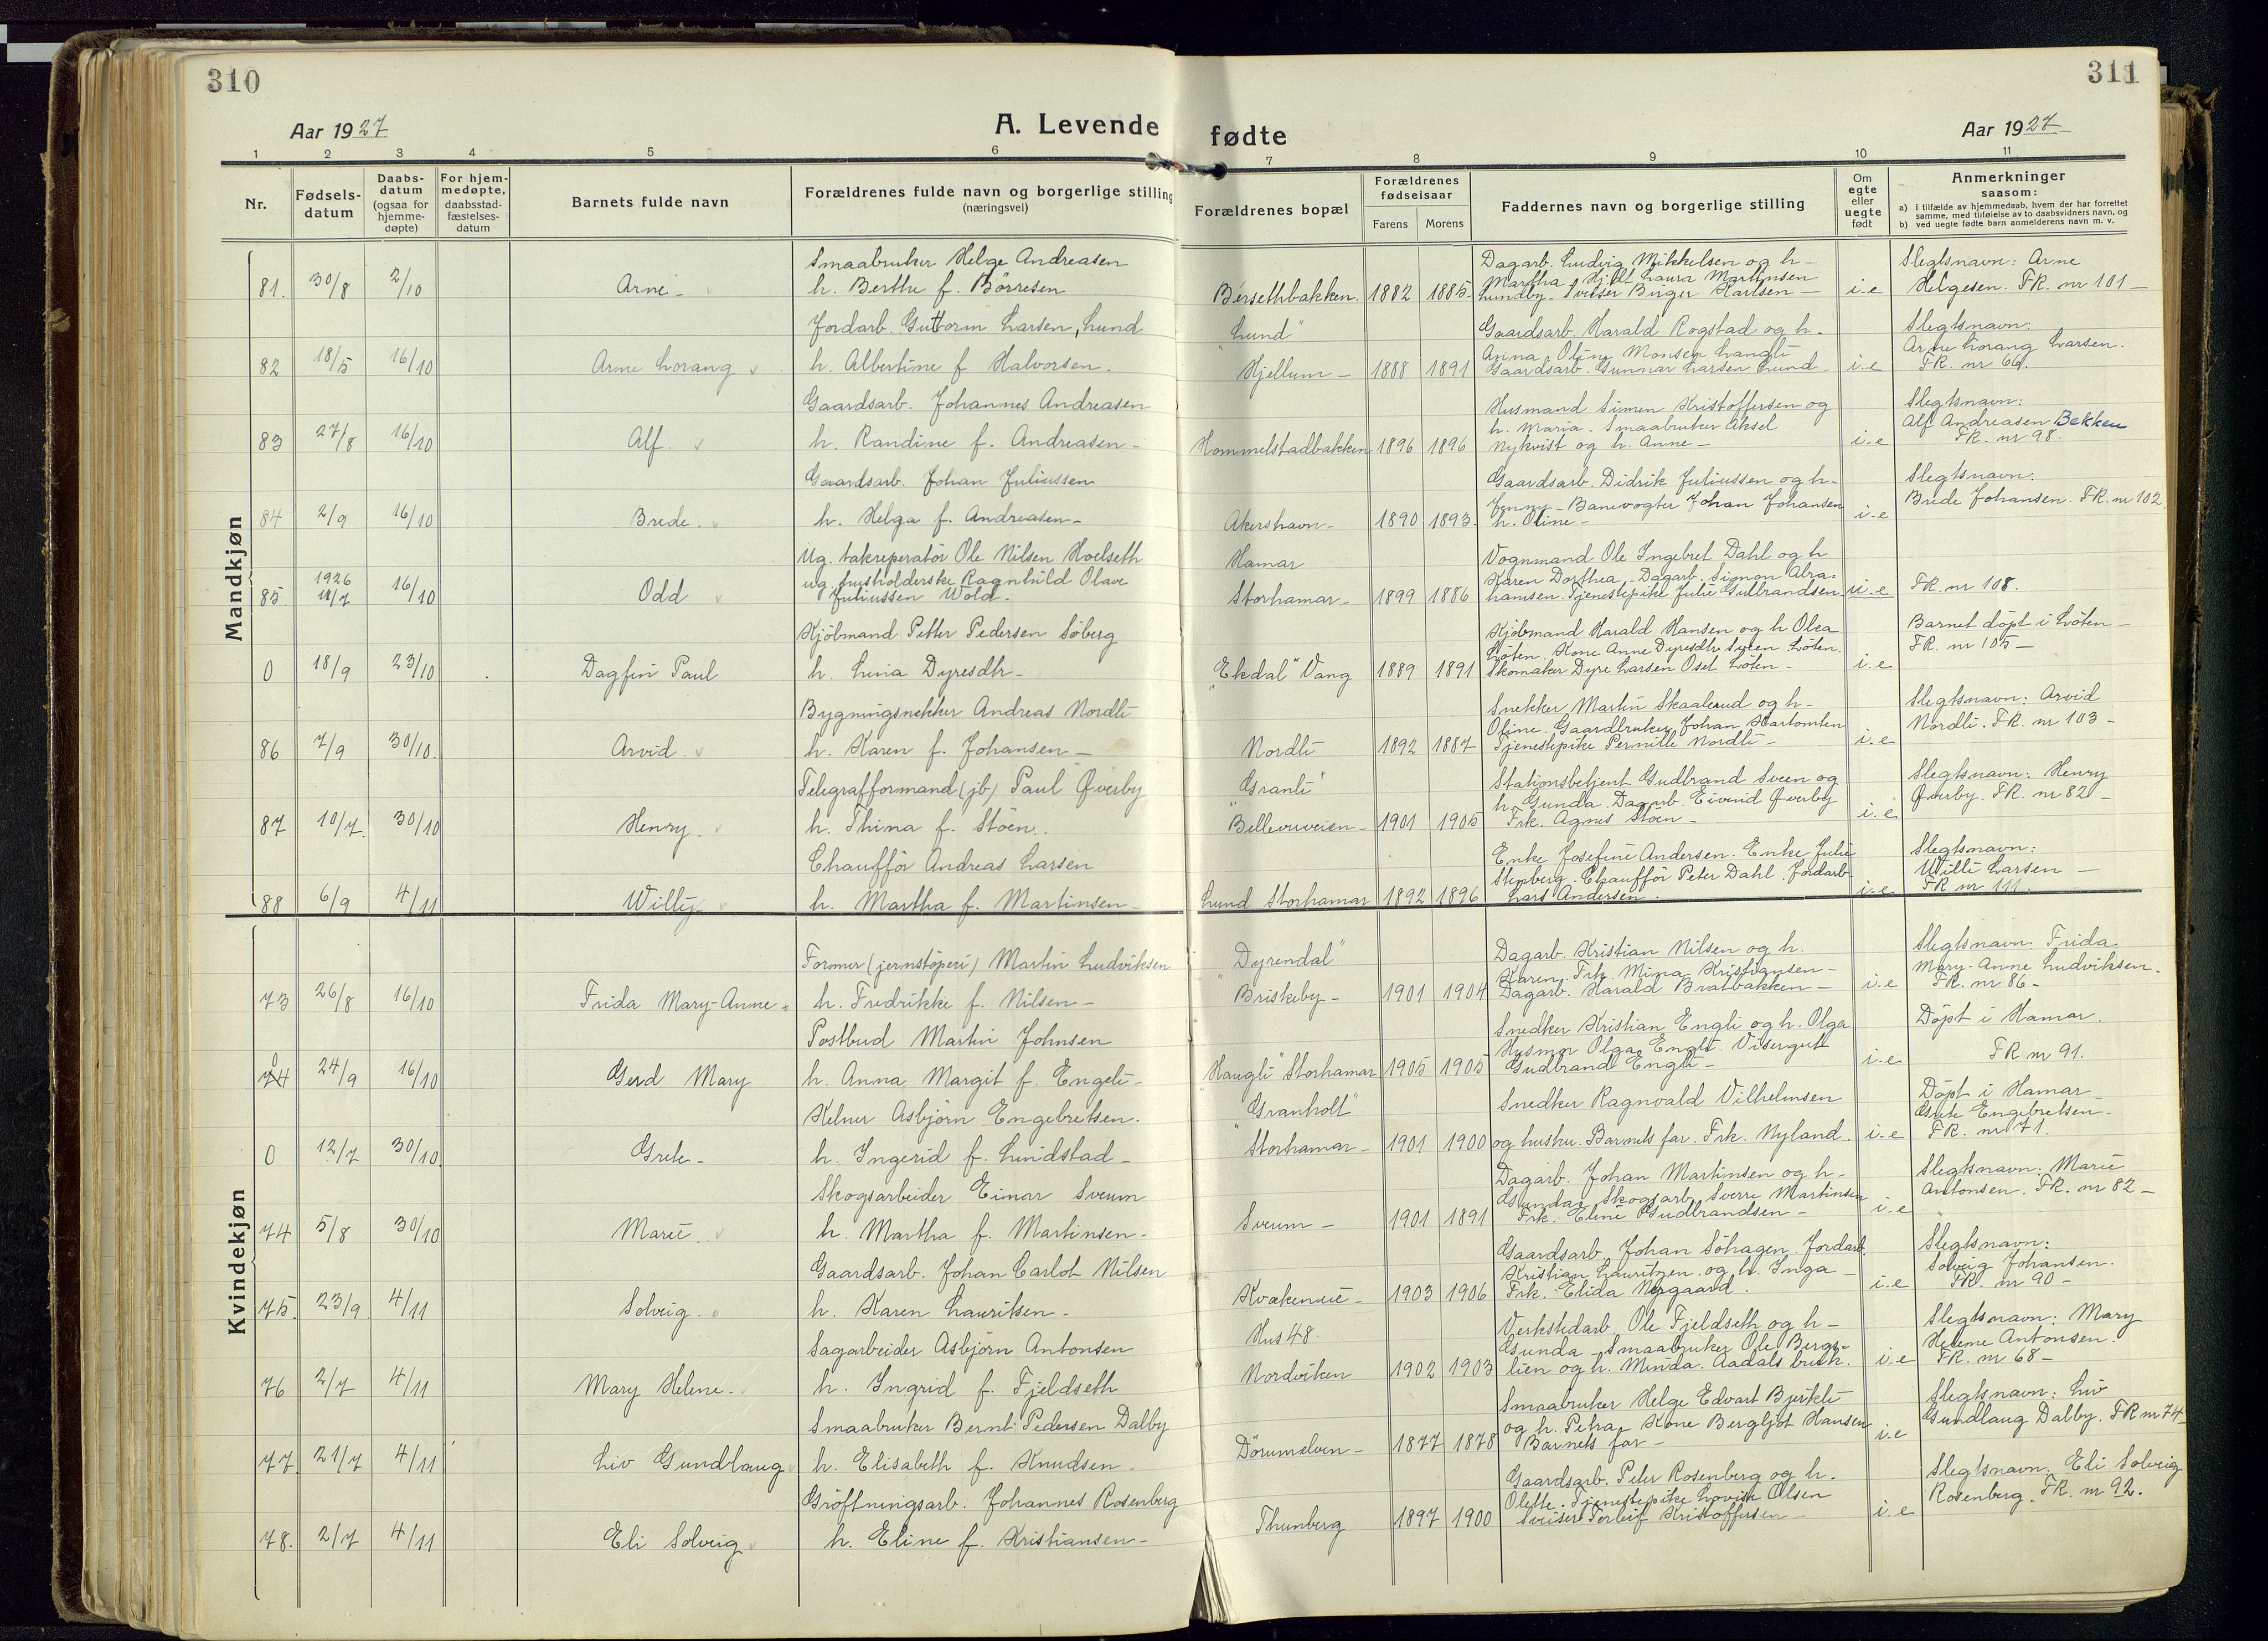 310
311
Aar 1927
A. Levende
fødte
Aar 1927
1 2 3 4 5 6 7 8 9 10 11
Nr.
Fødsels-
datum
Daabs-
datum
(ogsaa for
hjemme-
døpte)
For hjem-
medøpte,
daabsstad-
fæstelses-
datum
Barnets fulde navn
Forældrenes fulde navn og borgerlige stilling
(næringsvei)
Forældrenes bopæl
Forældrenes
fødselsaar
Farens
Morens
Faddernes navn og borgerlige stilling
Om
egte
eller
uegte
født
Anmerkninger
saasom:
a) i tilfælde av hjemmedaab, hvem der har forrettet
samme, med tilføielse av to daabsvidners navn, og
b) ved uegte fødte barn anmelderens navn m. v.
Mandkjøn
Smaabruker Helge Andreasen
81. 30/8 2/10 Arne h. Berthe f. Børresen
Bersethbakken. 1882 1885
Dagarb. Ludvig Mikkelsen og h-
Martha, Hjilt Laura Martinsen
Lundby. Sveiser Birger Karlsen
i.e
Slegtsnavn: Arne
Helgesen. FR. nr 101
Jordarb. Guttorm Larsen, Lund
82 18/5 16/10 Arne Lorang h. Albertine f Halvorsen.
"Lund"
Hjellum 1888 1891
Gaardsarb. Harald Rogstad og h.
Anna, Oline Monsen Langli
Gaardsarb. Gunnar Larsen Lund
i.e
Slegtsnavn:
Arne Lorang Larsen.
FR. nr 66.
Gaardsarb. Johannes Andreasen
83 27/8 16/10 Alf. h. Randine f. Andreasen
Hommelstadbakken 1896 1896
Husmand Simen Kristoffersen og
h. Maria. Smaabruker Aksel
Nykvist og h. Anne
i.e
Slegtsnavn:
Alf Andreasen Bekken
FR. nr 98.
Gaardsarb. Johan Juliussen
84 2/9 16/10 Brede. h. Helga f. Andreasen
Akershavn 1890 1893.
Gaardsarb. Didrik Juliussen og h-
Jenny - Banevogter Johan Johansen
h. Oline
i.e
Slegtsnavn.
Brede Johansen. FR. nr 102
Ug. takreperatör Ole Nilsen Hoelseth
85. 1926 16/10 Odd ug. husholderske Ragnhild Olave
Juliussen Wold.
Hamar
Storhamar 1899 1886
Vognmand Ole Ingebret Dahl og h
Karen Dorthea, Dagarb. Simon Abra-
hamsen. Tjenestepike Julie Gulbrandsen
u.e
FR. nr 108.
Kjöbmand Petter Pedersen Söberg
0 18/9 23/10 Dagfin Paul h. Lina Dyresdtr
"Ekdal" Vang 1889 1891
Kjöbmand Harald Hansen og h Olea
Löten. Kone Anne Dyresdtr Syten Löten.
Skomaker Dyre Larsen Oset Löten
i.e
Barnet döpt i Löten
FR. nr 105
Bygningsnekker Andreas Nordli
86 7/9 30/10. Arvid. h. Karen f. Johansen
Nordli 1892 1887
Snekker Martin Skaalerud og h-
Oline. Gaardbruker Johan
Tjenestepike Pernille Nordli
i.e
Slegtsnavn: Arvid
Nordli. FR. nr 103
Telegrafformand (jb) Paul Øverby
87 10/7. 30/10 Henry. h. Thina f. Stöen.
"Granli"
Bellevueveien 1901 1905
Stationsbetjent Gudbrand Sveen og
h. Gunda. Dagarb. Eivind Øverby
Frk. Agnes Stöen
i.e
Slegtsnavn: Henry
Øverby. FR. nr 82
Chaufför Andreas Larsen
88 6/9 4/11 Willy h. Martha f. Martinsen
Lund Storhamar 1892 1896
Enke Josefine Andersen. Enke Julie
Stenberg. Chaufför Peter Dahl. Jordarb.
Lars Andersen.
i.e
Slegtsnavn:
Willi Larsen
FR nr 111.
Kvindekjøn
Former (jernstöperi) Martin Ludviksen
73 26/8 16/10 Frida Mary-Anne h. Fredrikke f. Nilsen
"Dyrendal"
Briskeby 1901 1904
Dagarb. Kristian Nilsen og h.
Karen, Frk. Mina Kristiansen
Dagarb. Harald Bratbakken
i.e
Slegtsnavn. Frida
Mary-Anne Ludviksen.
FR. nr 86
Postbud Martin Johnsen
0 74 24/9 16/10 Gerd Mary h. Anna Margit f. Engeli
Haugli" Storhamar 1905 1905
Snedker Kristian Engli og h. Olga
Husmor Olga Engli. Visergut
Gudbrand Engli
i.e
Döpt i Hamar.
FR nr 91.
Kelner Asbjørn Engebretsen.
0 12/7 30/10. Grete h. Ingerid f. Lundstad
"Granholt"
Storhamar 1901 1900
Snedker Ragnvald Vilhelmsen
og hustru. Barnets far. Frk. Nyland.
i.e
Döpt i Hamar
Grete Engebretsen.
FR. nr 71.
Skogsarbeider Einar Sveum
74 5/8 30/10 Marie. h. Martha f. Martinsen
Sveum 1901 1891
Dagarb. Johan Martinsen og h-
Gunda, Skogsarb. Sverre Martinsen
Frk. Eline Gudbrandsen
i.e
Slegtsnavn: Marie
Antonsen. FR. nr 82
Gaardsarb. Johan Carlot Nilsen
75. 23/9 4/11 Solveig. h. Karen Lauritsen
Kvækerneie 1903 1906
Gaardsarb. Johan Söhagen. Jordarb.
Kristian Lauritzen og h. Inga
Frk. Elida Nergaard.
i.e
Slegtsnavn:
Solveig Johansen.
FR. nr 90
Sagarbeider Asbjörn Antonsen
76 2/7 4/11 Mary Helene h. Ingrid f. Fjeldseth
Hus 48.
Nordviken 1902 1903
Verkstedarb. Ole Fjeldseth og h
Gunda - Smaabruker Ole Bergs-
lien og h. Minda. Aadals bruk.
i.e
Slegtsnavn: Mary
Helene Antonsen.
FR. nr 68
Smaabruker Bernt Pedersen Dalby
77. 21/7 4/11 Liv Gundlaug h. Elisabeth f. Knudsen
Dörumelven 1877 1878
Smaabruker Helge Edvart Bjerkli
og h. Petra. Kone Bergljot Hansen
Barnets far
i.e
Slegtsnavn: Liv
Gundlaug Dalby. FR nr 74
Gröftningsarb. Johannes Rosenberg
78. 2/7 4/11 Eli Solveig h. Eline f. Kristiansen
Thunberg 1897 1900
Gaardsarb. Peter Rosenberg og h.
Olette. Tjenestepike Lovise Olsen
Sveiser Torleif Kristoffersen
i.e
Slegtsnavn. Eli Solveig
Rosenberg. FR. nr 92.